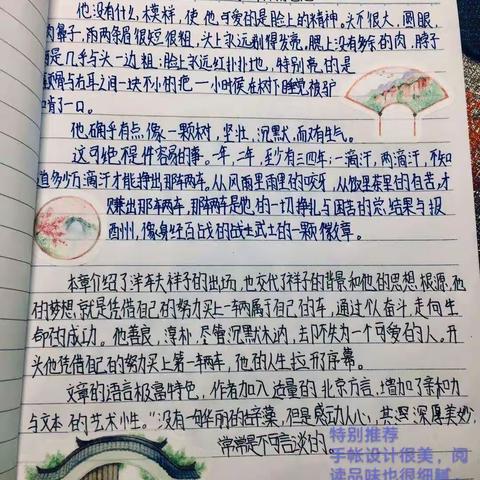 他没有什么模样，使他可爱的是脸上的精神。头不很大，圆眼，
肉鼻子，两条眉很短很粗，头上永远剃得发亮。腮上没有多余的肉，脖子
是几乎与头一边粗；脸上永远红扑扑地，特别亮的是
颧骨与右耳之间一块不小的疤 一小时候在树下睡觉，被驴
啃了一口。
他确乎有点像一颗树，坚壮，沉默，而又有生气。
这可绝不是件容易的事。一年，二年，至少有三四年；一滴汗，两滴汗，不知
道多少万滴汗才能挣出那辆车。从风里雨里的咬牙，从饭里茶里的自苦，才
赚出那辆车，那辆车是他的一切挣扎与困苦的总结果与报
酬，像身经百战的战士武士的一颗徽章。
本章介绍了洋车夫祥子的出场，也交代了祥子的背景和他的思想根源，他
的梦想就是凭借自己的努力买上一辆属于自己的车，通过个人奋斗，走向生
命的成功。他善良，淳朴，尽管沉默木讷，却不失为一个可爱的人。开
头他凭借自己的努力买上第一辆车，他的人生拉开序幕。
文章的语言极富特色，作者加入适量的北京方言，增加了亲和力
与文本的艺术性。"没有一句华丽的辞藻，但是感动人心，其深厚美妙，
常常是不可言说的。
特别推荐
手帐设计很美，阅
读品味也很细腻